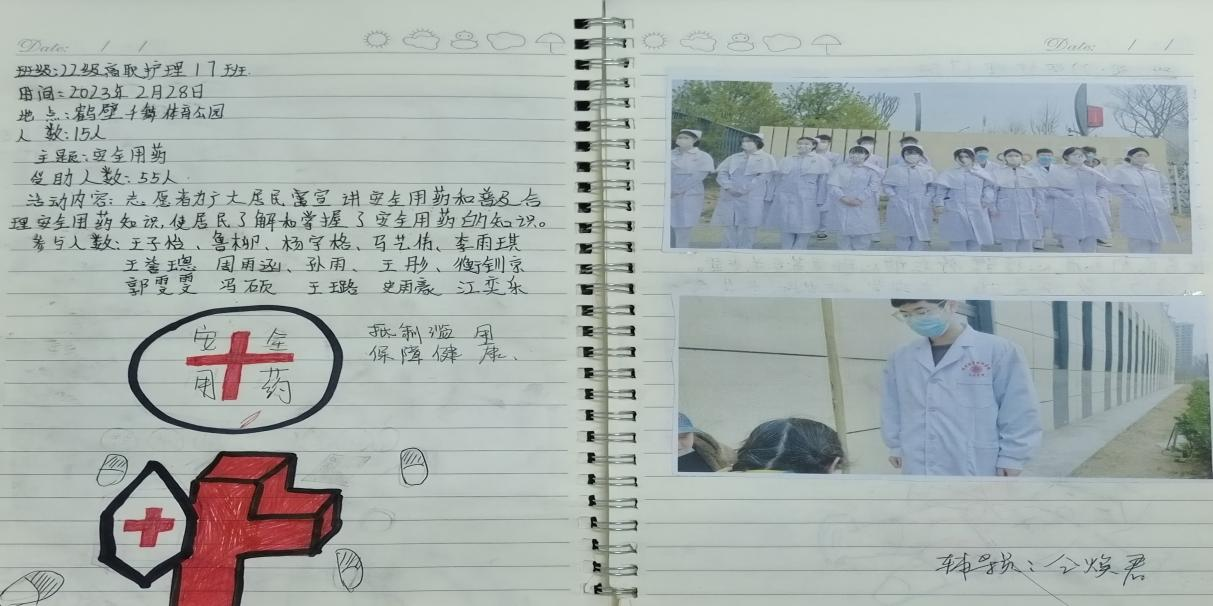 Date: / /
班级:22级高职护理17班
时间:2023年2月28日
地点:鹤壁千鹤体育公园
人数:15人
主题:安全用药
受助人数:55人
活动内容:志愿者为广大居民宣讲安全用药和普及合
理安全用药知识,使居民了解和掌握了安全用药的知识。
参与人数:王子怡、鲁柳、杨宇格、马艺佑、李雨琪
王 周雨涵、孙雨、王彤、衡钏京
郭雯雯 冯硕 王璐 史雨豪 江奕乐
安全
用药
抵制滥用
保障健康、
Date: / /
辅导员:仝焕君